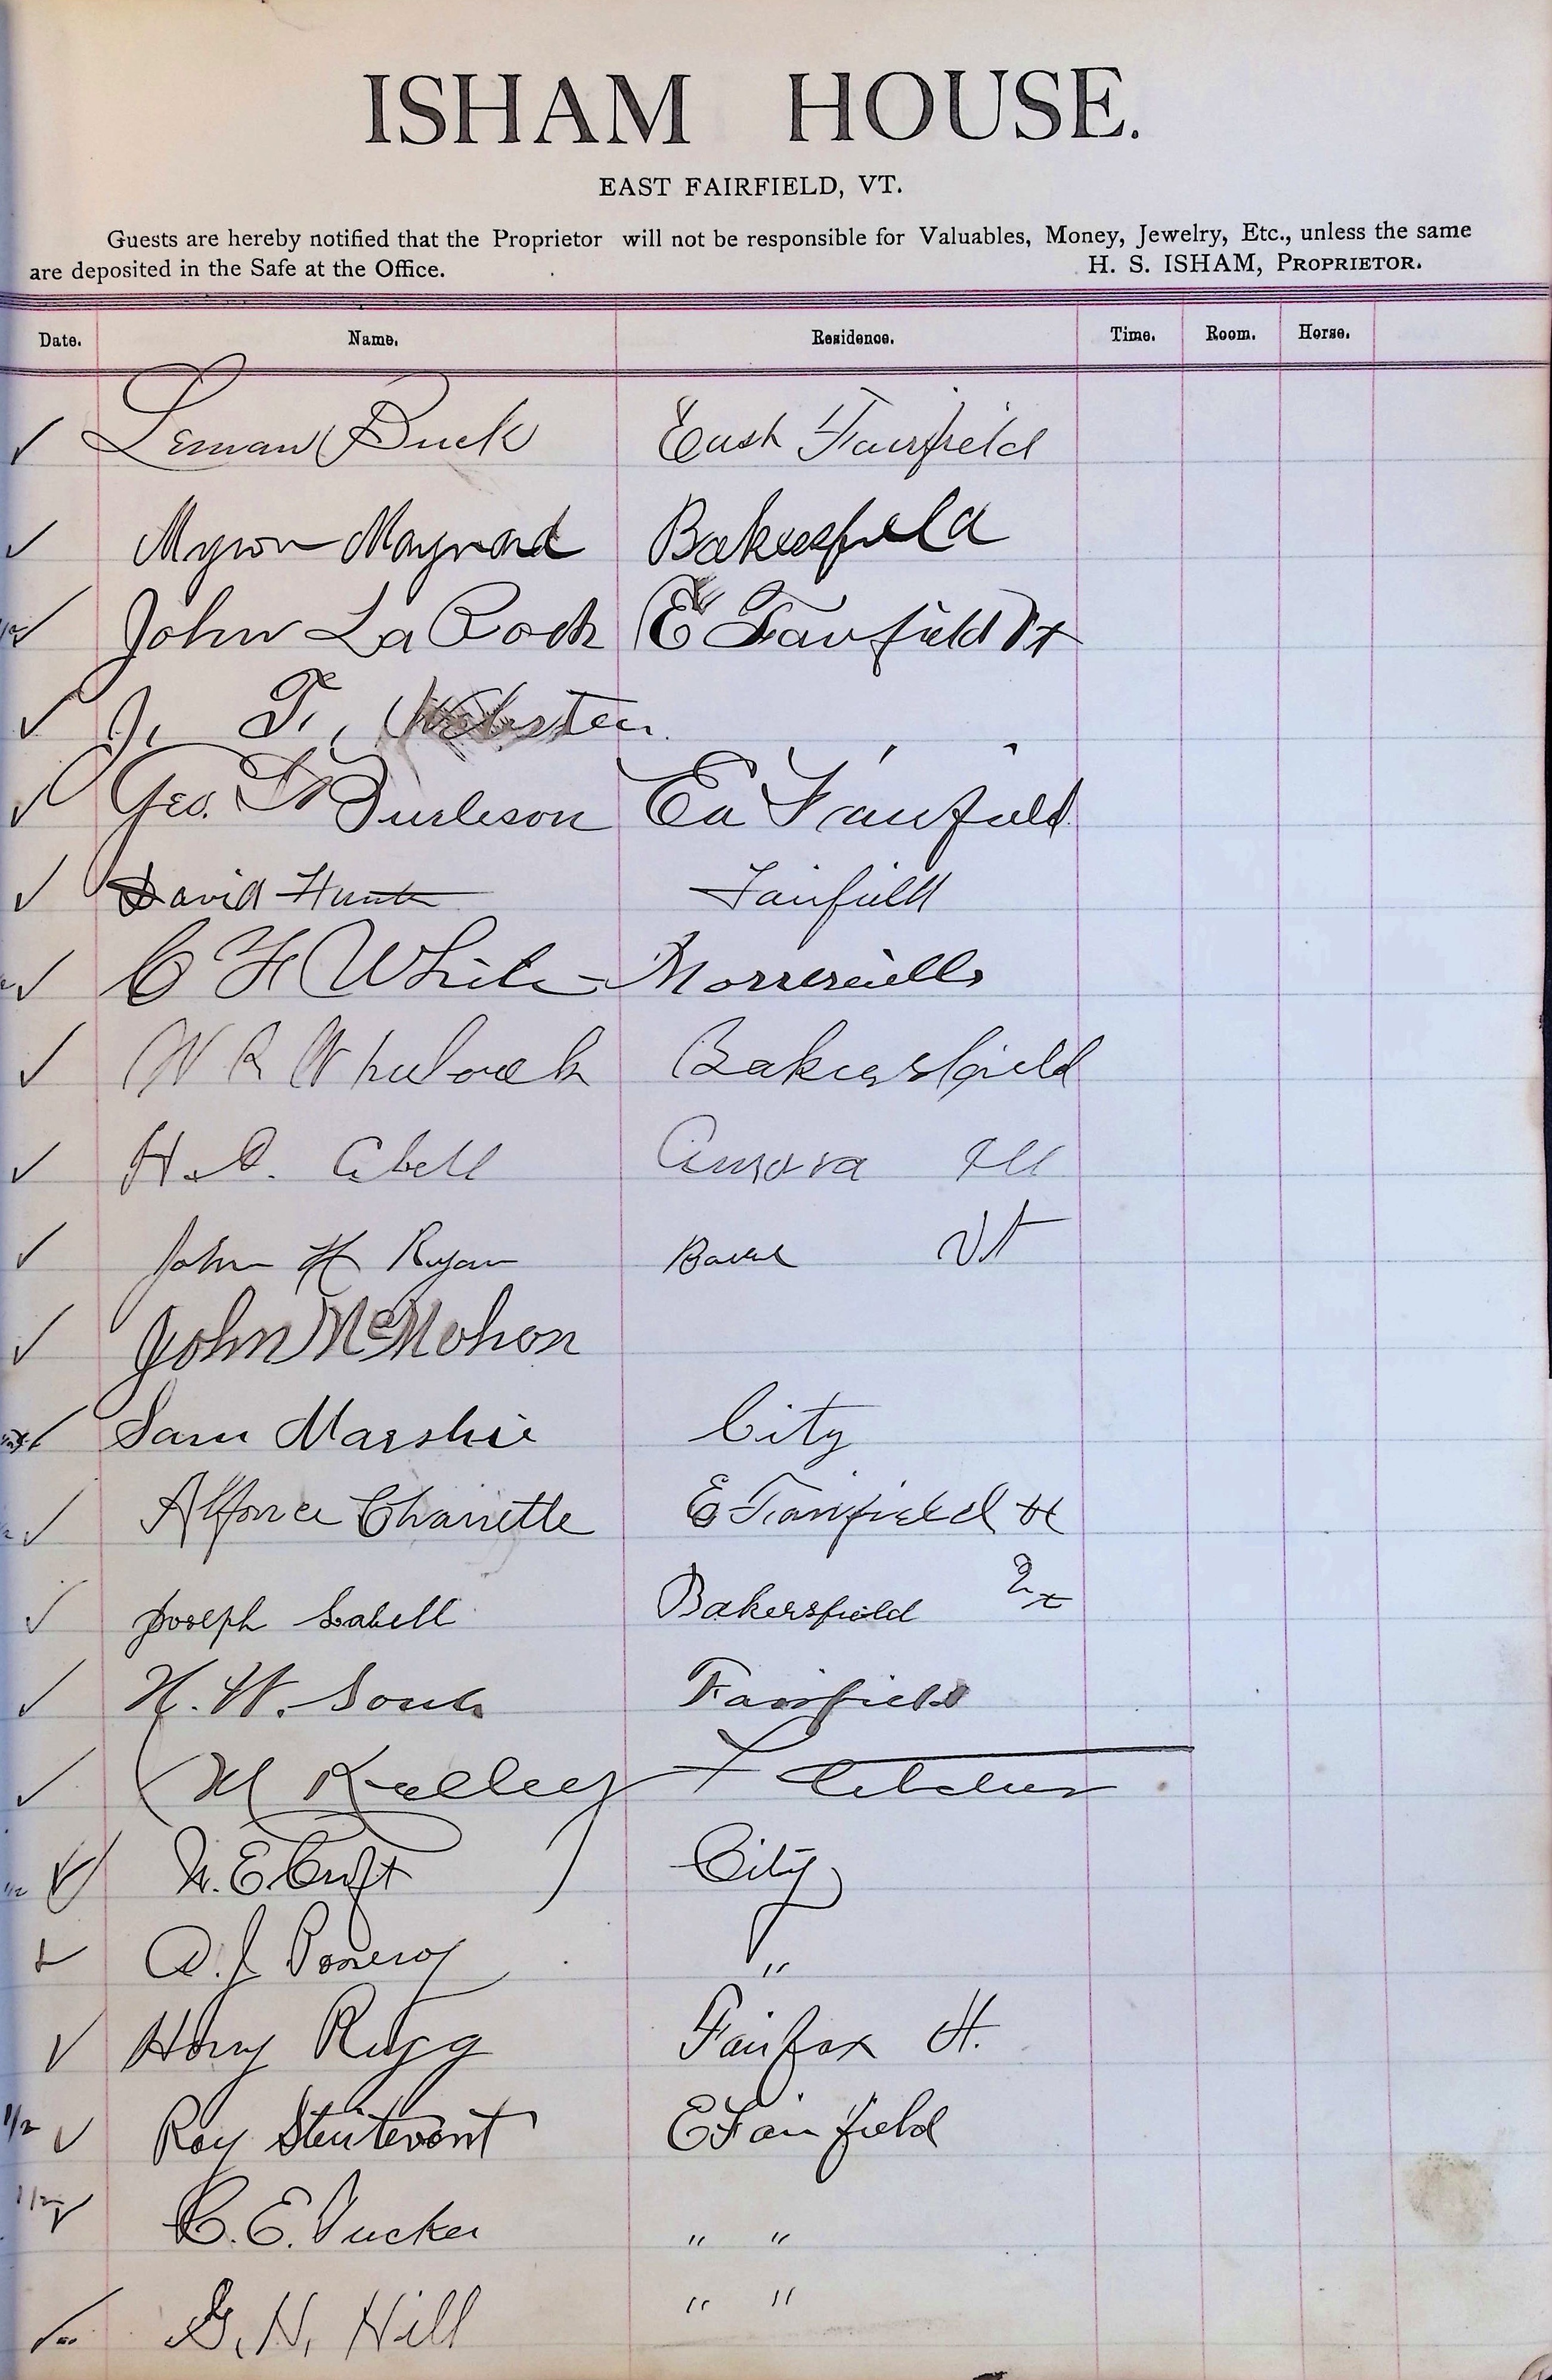 ISHAM HOUSE.
EAST FAIRFIELD, VT.
Guests are hereby notified that the Proprietor will not be responsible for Valuables, Money, Jewelry, Etc., unless the same
are deposited in the Safe at the Office. H. S. ISHAM, PROPRIETOR.
Date. Name. Residence. Time. Room. Horse.
✓ Leman Buck East Fairfield
✓ Myron Maynard Bakersfield
✓ John La Rock E Fairfield Vt
✓ J. T. Webster
✓ Geo. Burleson Ea Fairfield
✓ David Hunt Fairfield
✓ C H White Morrisville
✓ W R Wheelock Bakersfield
✓ H. D. Abell Aurora Ill
✓ John H Ryan Barre Vt
✓ John McMohon
✓ Sam Marshie City
✓ Alfonce Charrette E Fairfield Vt
✓ Joseph Labell Bakersfield Vt
✓ H. W. Soule Fairfield
✓ M Kelley Fletcher
1/2 ✓ N. E. Croft City
✓ A. J. Pomeroy "
✓ Harry Rugg Fairfax Vt.
1/2 ✓ Roy Sturtevant E Fairfield
1/2 ✓ C. E. Tucker " "
✓ G. N. Hill " "